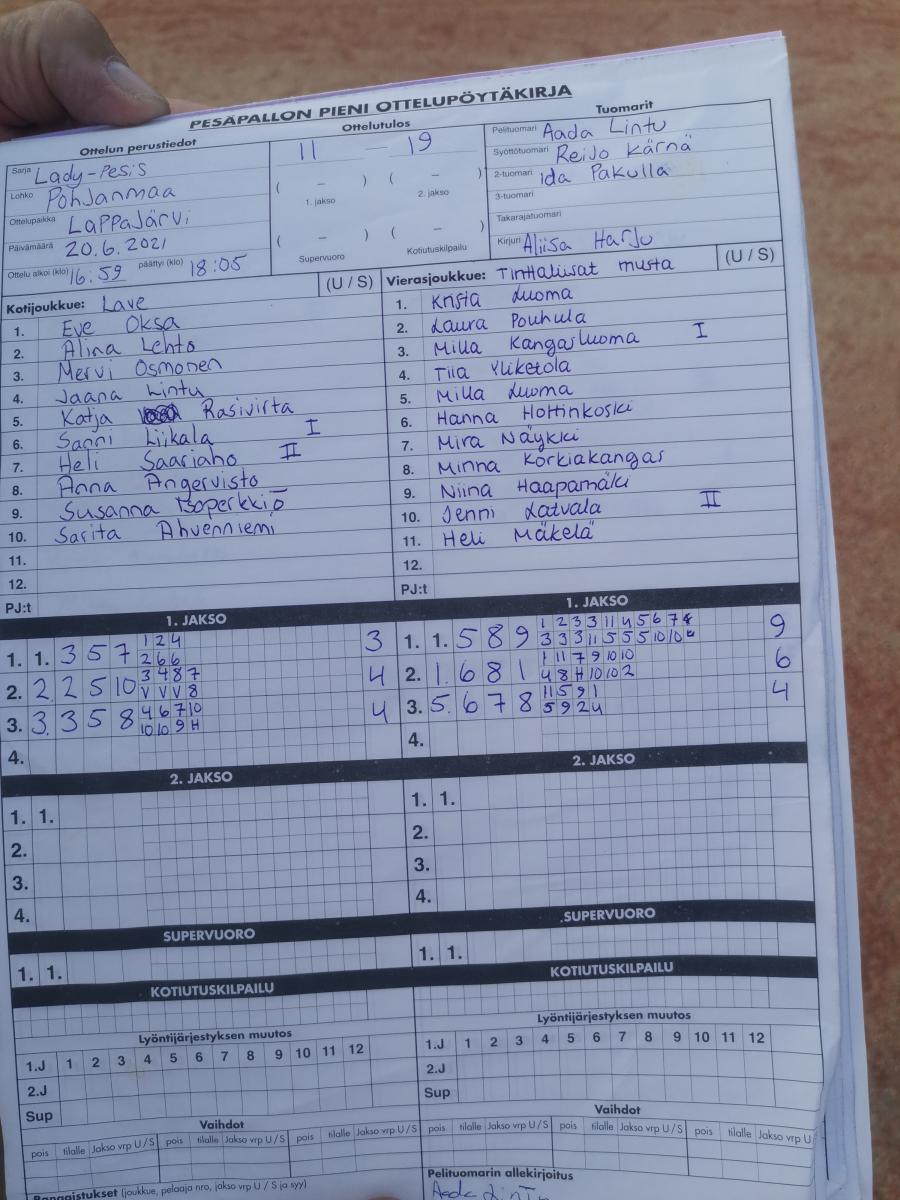 PESÄPALLON PIENI OTTELUPÖYTÄKIRJA
Ottelun perustiedot
Sarja Lady-Pesis
Lohko Pohjanmaa
Ottelupaikka Lappajärvi
Päivämäärä 20.6.2021
Ottelu alkoi (klo) 16:59 päättyi (klo) 18:05
Ottelutulos
11 — 19
( – ) ( – )
1. jakso 2. jakso
( – ) ( – )
Supervuoro Kotiutuskilpailu
Tuomarit
Pelituomari Aada Lintu
Syöttötuomari Reijo Kärnä
2-tuomari Ida Pakulla
3-tuomari
Takarajatuomari
Kirjuri Aliisa Harju
Kotijoukkue: Lave (U / S)
1. Eve Oksa
2. Alina Lehto
3. Mervi Osmonen
4. Jaana Lintu
5. Katja Rasivirta
6. Sanni Liikala I
7. Heli Saariaho II
8. Anna Angervisto
9. Susanna Isoperkkiö
10. Sarita Ahvenniemi
11.
12.
PJ:t
Vierasjoukkue: Tinttaliisat musta (U / S)
1. Krista Luoma
2. Laura Pouhula
3. Milla Kangasluoma I
4. Tiia Yliketola
5. Milla Luoma
6. Hanna Hottinkoski
7. Mira Näykki
8. Minna Korkiakangas
9. Niina Haapamäki
10. Jenni Latvala II
11. Heli Mäkelä
12.
PJ:t
1. JAKSO
1. 1. 3 5 7 1 2 4 3
2 6 6
2. 2 2 5 10 3 4 8 7 4
V V V 8
3. 3. 3 5 8 4 6 7 10 4
10 10 9 H
4.
1. JAKSO
1. 1. 5 8 9 1 2 3 3 11 4 5 6 7 9
3 3 3 11 5 5 5 10 10
2. 1. 6 8 1 1 11 7 9 10 10 6
4 8 H 10 10 2
3. 5. 6 7 8 11 5 9 1 4
5 9 2 4
4.
2. JAKSO
1. 1.
2.
3.
4.
2. JAKSO
1. 1.
2.
3.
4.
SUPERVUORO
1. 1.
SUPERVUORO
1. 1.
KOTIUTUSKILPAILU
KOTIUTUSKILPAILU
Lyöntijärjestyksen muutos
1.J 1 2 3 4 5 6 7 8 9 10 11 12
2.J
Sup
Lyöntijärjestyksen muutos
1.J 1 2 3 4 5 6 7 8 9 10 11 12
2.J
Sup
Vaihdot
pois tilalle Jakso vrp U / S pois tilalle Jakso vrp U / S pois tilalle Jakso vrp U / S
Vaihdot
pois tilalle Jakso vrp U / S pois tilalle Jakso vrp U / S pois tilalle Jakso vrp U
Rangaistukset (joukkue, pelaaja nro, jakso vrp U / S ja syy)
Pelituomarin allekirjoitus
Aada Lintu